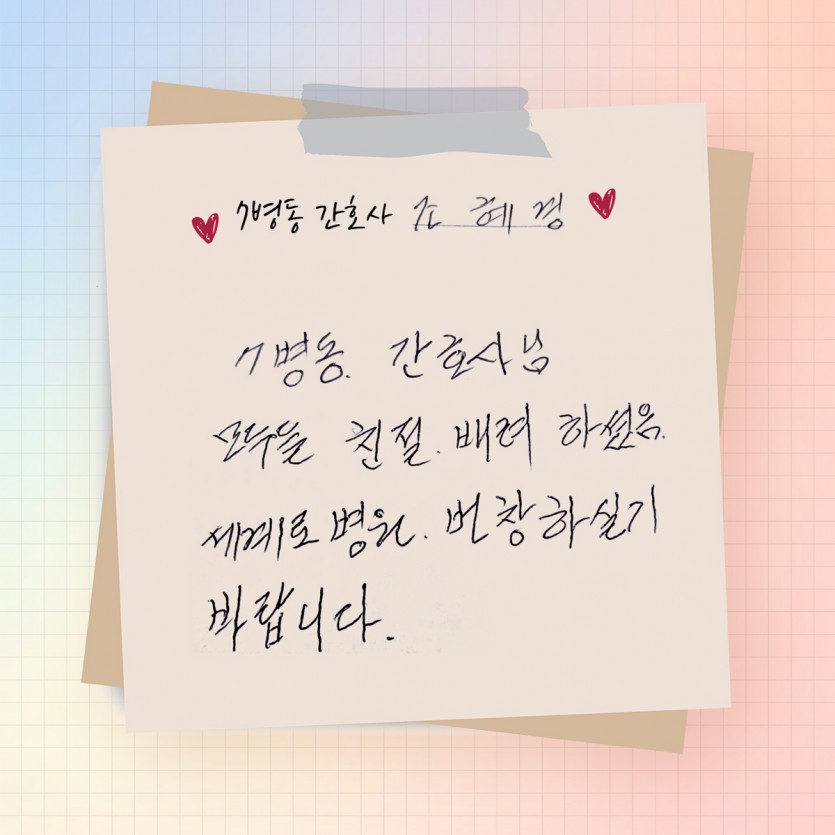 7병동 간호사 조 혜 경
7병동. 간호사님
모두들 친절. 배려 하셨음.
세계로병원. 번창하실기
바랍니다.